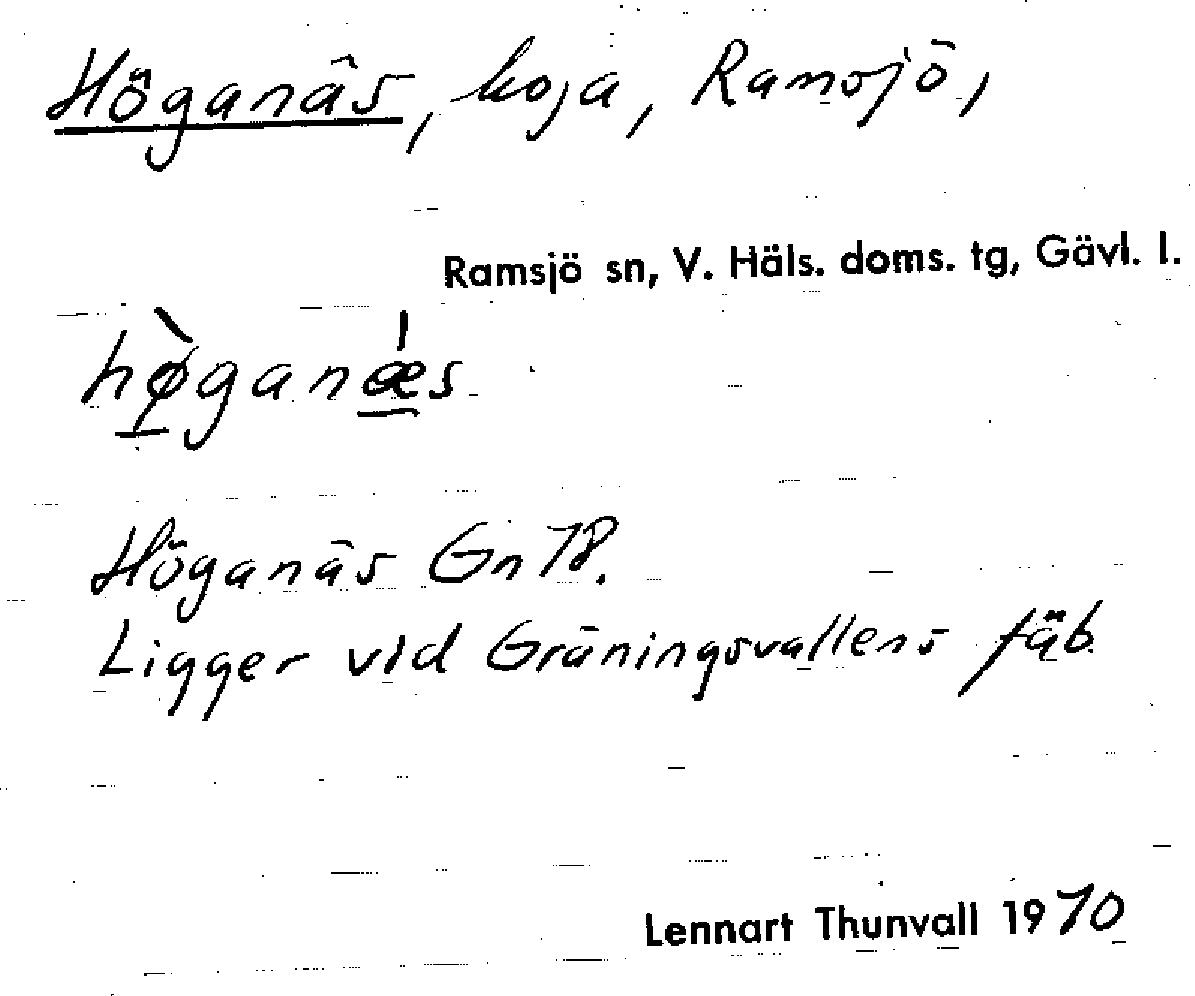 Höganäs, koja, Ramsjö,
Ramsjö sn, V. Häls. doms. tg, Gävl. l.
hø̀ganǽs
Höganäs Gn 78.
Ligger vid Gräningsvallens fäb
Lennart Thunvall 1970